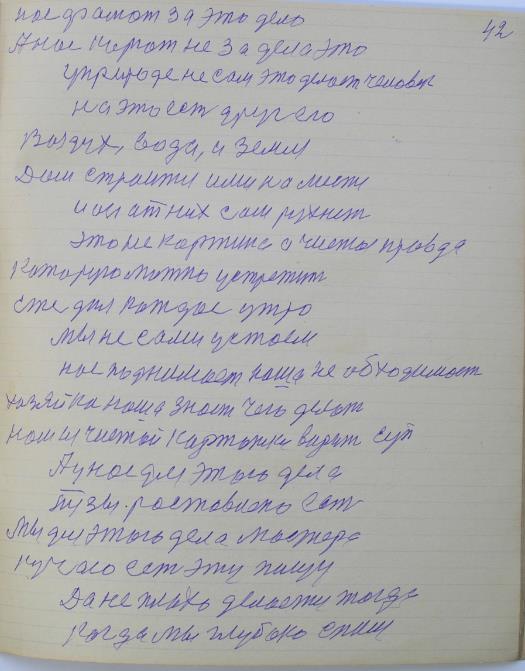 42
нас  за это дело
А нас кормят не за дела это
у природе не сам это делает человек
на это ест друг его
Воздух, вода, и земля
Дом строити ими на месте
и он от них сам рухнет
это не картина а чистая правда
Которую можно устретит
еже дня каждое утро
мы не сами устаем
нас поднимает наша не обходимост
хозяйка наша знает чего делат
нам и чистой картошки варит суп
А у нас для этого дела
 ест
Мы для этого дела мастера
кушаю ест эту пищу
Да не плохо делаети тогда
когда мы глубоко спим